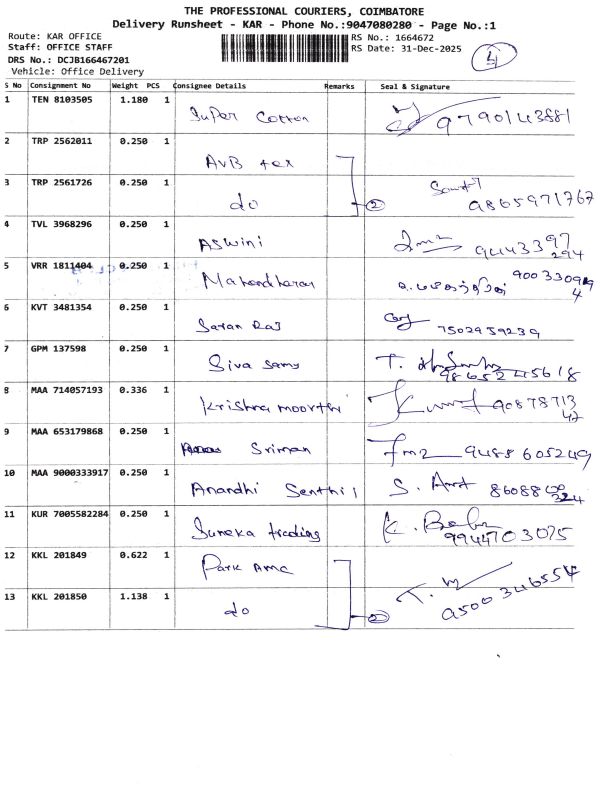 THE PROFESSIONAL COURIERS, COIMBATORE
Delivery Runsheet - KAR - Phone No.:9047080280 - Page No.:1
Route: KAR OFFICE
Staff: OFFICE STAFF
DRS No.: DCJB166467201
Vehicle: Office Delivery
RS No.: 1664672
RS Date: 31-Dec-2025
4
S No Consignment No Weight PCS Consignee Details Remarks Seal & Signature
1 TEN 8103505 1.180 1 Super Cotton 9790143881
2 TRP 2562011 0.250 1 AVB tex
3 TRP 2561726 0.250 1 do 2 9865971767
4 TVL 3968296 0.250 1 Aswini 9443397294
5 VRR 1811404 0.250 1 Mahendharan
6 KVT 3481354 0.250 1 Saran Raj 7502959239
7 GPM 137598 0.250 1 Siva samy T. 9865245618
8 MAA 714057193 0.336 1 Krishna moorthi 9087871347
9 MAA 653179868 0.250 1 Sriman 9488605249
10 MAA 9000333917 0.250 1 Anandhi Senthil S.
11 KUR 7005582284 0.250 1 Sureka trading K. Babu 9944703075
12 KKL 201849 0.622 1 Park Amc
13 KKL 201850 1.138 1 do 2 T. 9500346554